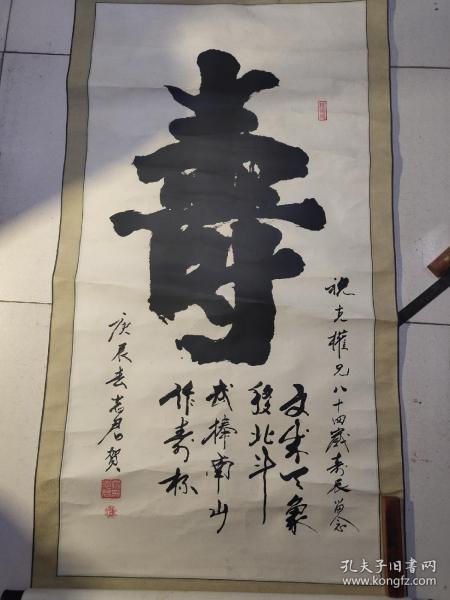 壽
祝克權兄八十四歲壽辰留念
文成天象
發北斗
我捧南山
作壽杯
庚辰春志君賀
孔夫子旧书网
www.kongfz.com